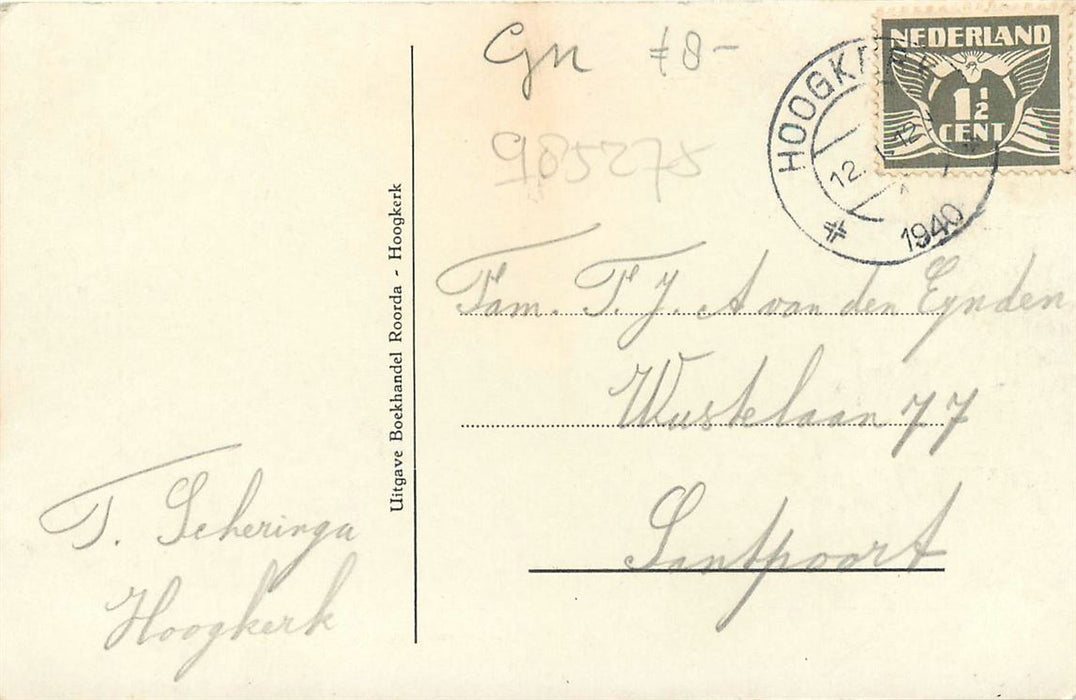 Gn f8-
NEDERLAND
1½
CENT
HOOGK
12. 12
1940
Uitgave Boekhandel Roorda - Hoogkerk
Fam. T. J. A van den Eynden
Wustelaan 77
Santpoort
T. Scheringa
Hoogkerk